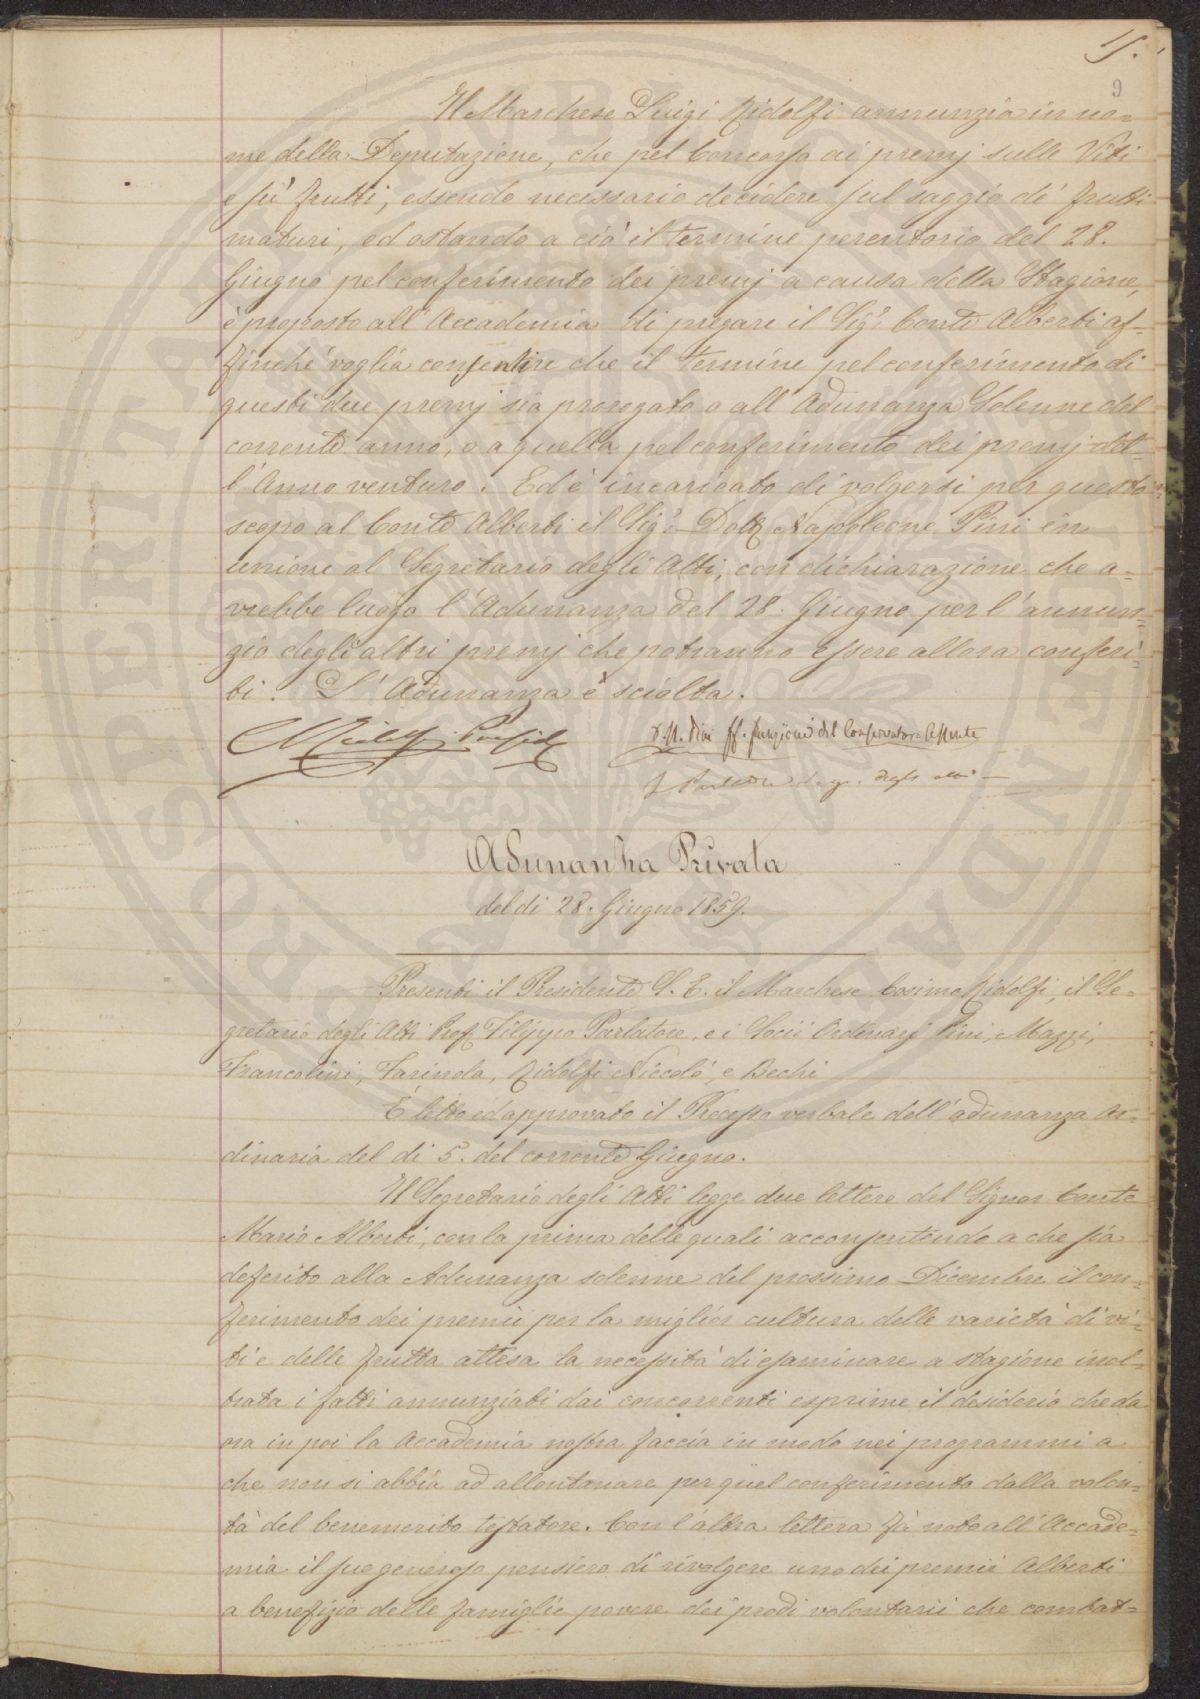 9
Il Marchese Luigi Ridolfi annunzia in no=
me della Deputazione, che pel Concorso ai premj sulle Viti
e sù frutti, essendo necessario decidere sul saggio de' frutti
maturi, ed ostando a ciò il termine perentorio del 28.
Giugno pel conferimento dei premj a causa della Stagione,
è proposto all'Accademia di pregare il Sig.r Conte Alberti af=
finchè voglia consentire che il termine pel conferimento di
questi due premj sia prorogato o all'Adunanza Solenne del
corrente anno, o a quella pel conferimento dei premj del=
l'Anno venturo. Ed è incaricato di volgersi per questo
scopo al Conte Alberti il Sig.r Dott. Napoleone Pini in
unione al Segretario degli Atti, con dichiarazione che a=
vrebbe luogo l'Adunanza del 28. Giugno per l'annun=
zio degli altri premj che potranno essere allora conferi=
ti. L'Adunanza è sciolta.
C Ridolfi Presid.
D. N. Pini ff. funzioni del Conservatore assente
F Parlatore Segr. degli atti
Adunanza Privata
del dì 28. Giugno 1859.
Presenti il Presidente S. E. il Marchese Cosimo Ridolfi, il Se=
gretario degli Atti Prof. Filippo Parlatore, e i Socii Ordinarj Pini, Mazzi,
Francolini, Farinola, Ridolfi Niccolò, e Bechi
È letto ed approvato il Processo verbale dell'adunanza Or=
dinaria del dì 5. del corrente Giugno.
Il Segretario degli Atti legge due lettere del Signor Conte
Mario Alberti, con la prima delle quali acconsentendo a che sia
deferito alla Adunanza solenne del prossimo Dicembre il con=
ferimento dei premii per la miglior cultura delle varietà di vi=
ti e delle frutta attesa la necessità di esaminare a stagione inol=
trata i fatti annunziati dai concorrenti esprime il desiderio che da
ora in poi la Accademia nostra faccia in modo nei programmi a
che non si abbia ad allontanare per quel conferimento dalla volon=
tà del benemerito testatore. Con l'altra lettera fà noto all'Accade=
mia il suo generoso pensiero di rivolgere uno dei premii Alberti
a benefizio delle famiglie povere dei prodi volontarii che combat=